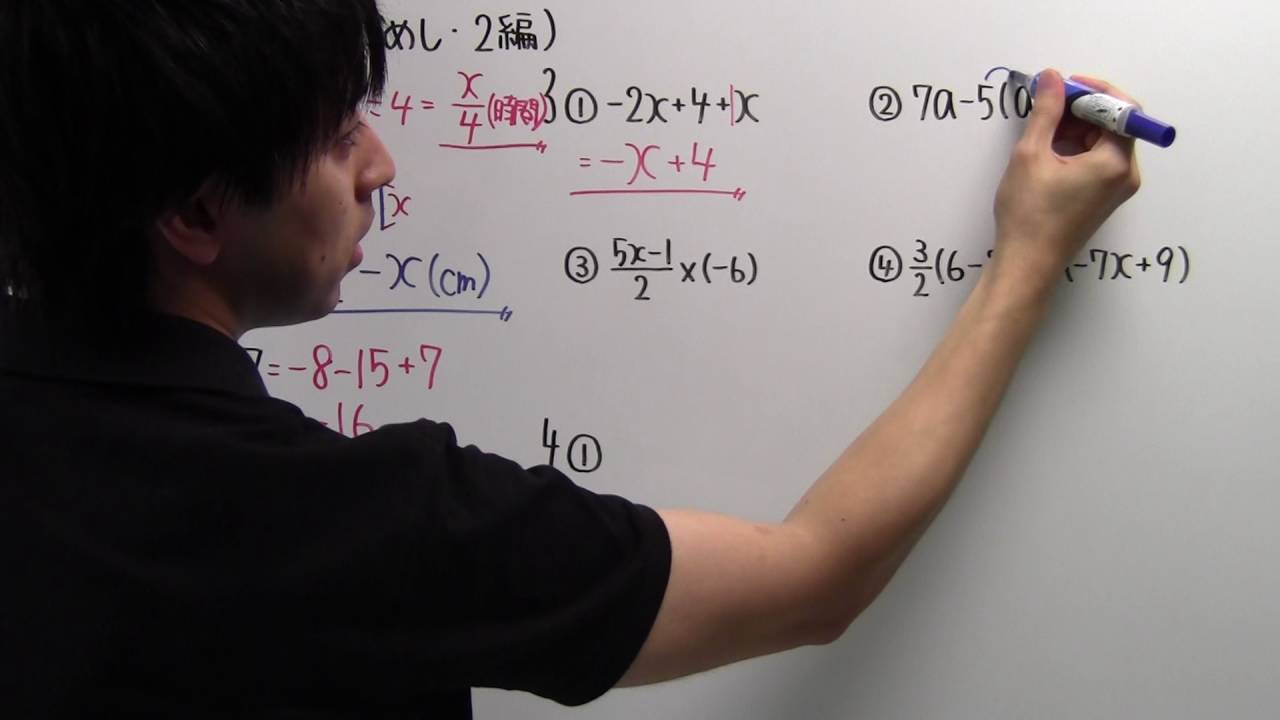 めし・2編)
=4=x/4(時間)
[x
-x(cm)
7=-8-15+7
-16
3 ① -2x+4+1x
=-x+4
② 7a-5(a
③ (5x-1)/2×(-6)
④ 3/2(6-
-7x+9)
4 ①